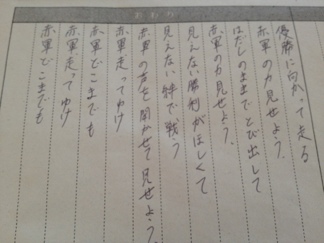 優勝に向かって走る
赤軍の力見せよう。
はだしのままでとび出して
赤軍の力見せよう。
見えない勝利がほしくて
見えない絆で戦う
赤軍の声を聞かせて見せよう。
赤軍走ってゆけ
赤軍どこまでも
赤軍走ってゆけ
赤軍どこまでも